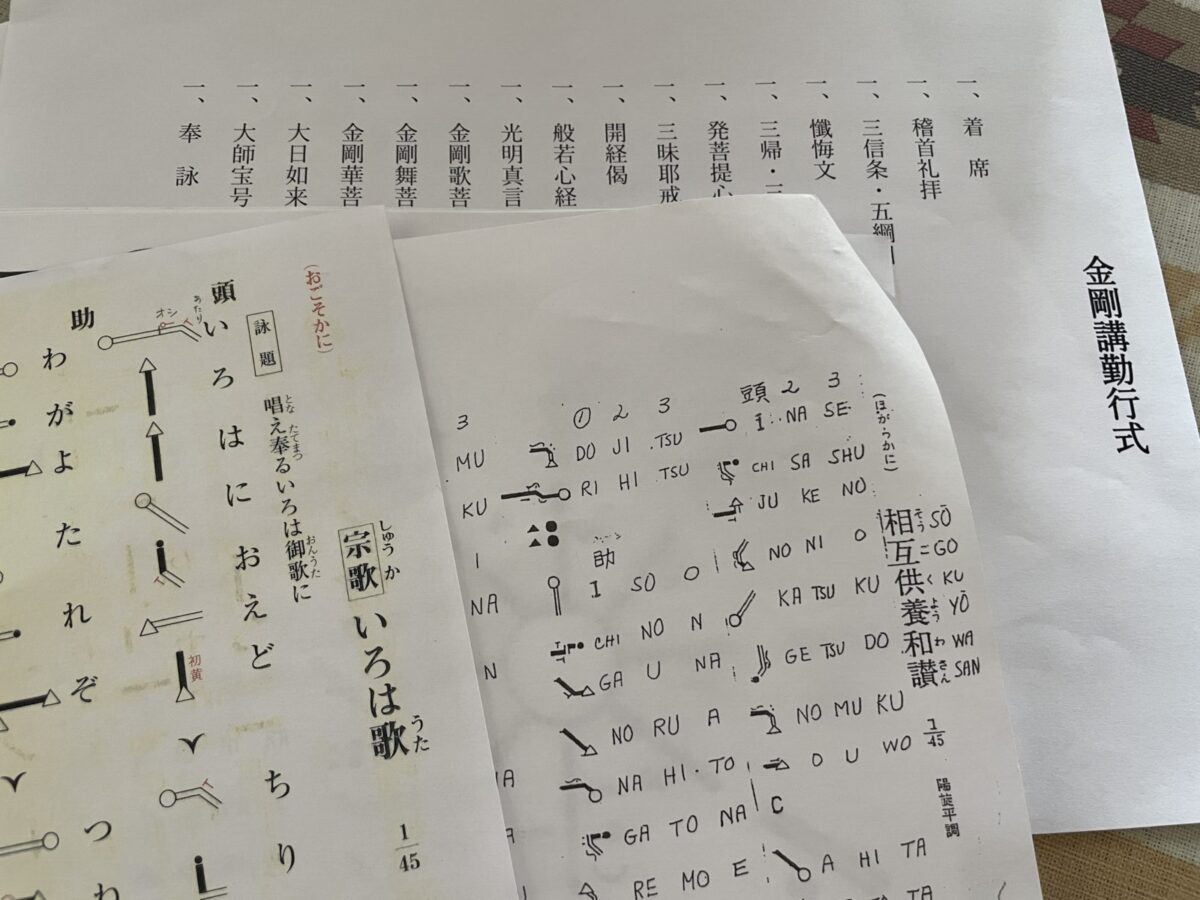 金剛講勤行式
一、着席
一、稽首礼拝
一、三信条・五綱
一、懺悔文
一、三帰・三
一、発菩提心
一、三昧耶戒
一、開経偈
一、般若心経
一、光明真言
一、金剛歌菩
一、金剛舞菩
一、金剛華菩
一、大日如来
一、大師宝号
一、奉詠
相互供養和讃
そうごくようわさん
SŌ GO KU YŌ WA SAN
1/45
陽旋平調
(ほがらかに)
3 SE SHU NO O KU DO KU WO
2 NA SA KE NI TSU TSU MU U
頭 I CHI JU NO KA GE NO O C
A HI TA
3 TSU TSU
2 JI HI
① DO RI
助
O N NA A TO NA E
SO NO U RU HI TO MO
I CHI GA NO NA GA RE
3 MU KU I NA N
宗歌 いろは歌
しゅうか うた
1/45
詠題
唱え奉るいろは御歌に
とな たてまつ おんうた
(おごそかに)
頭
いろはにおえどちり
あたり
オシ
初黄
助
わがよたれぞつね